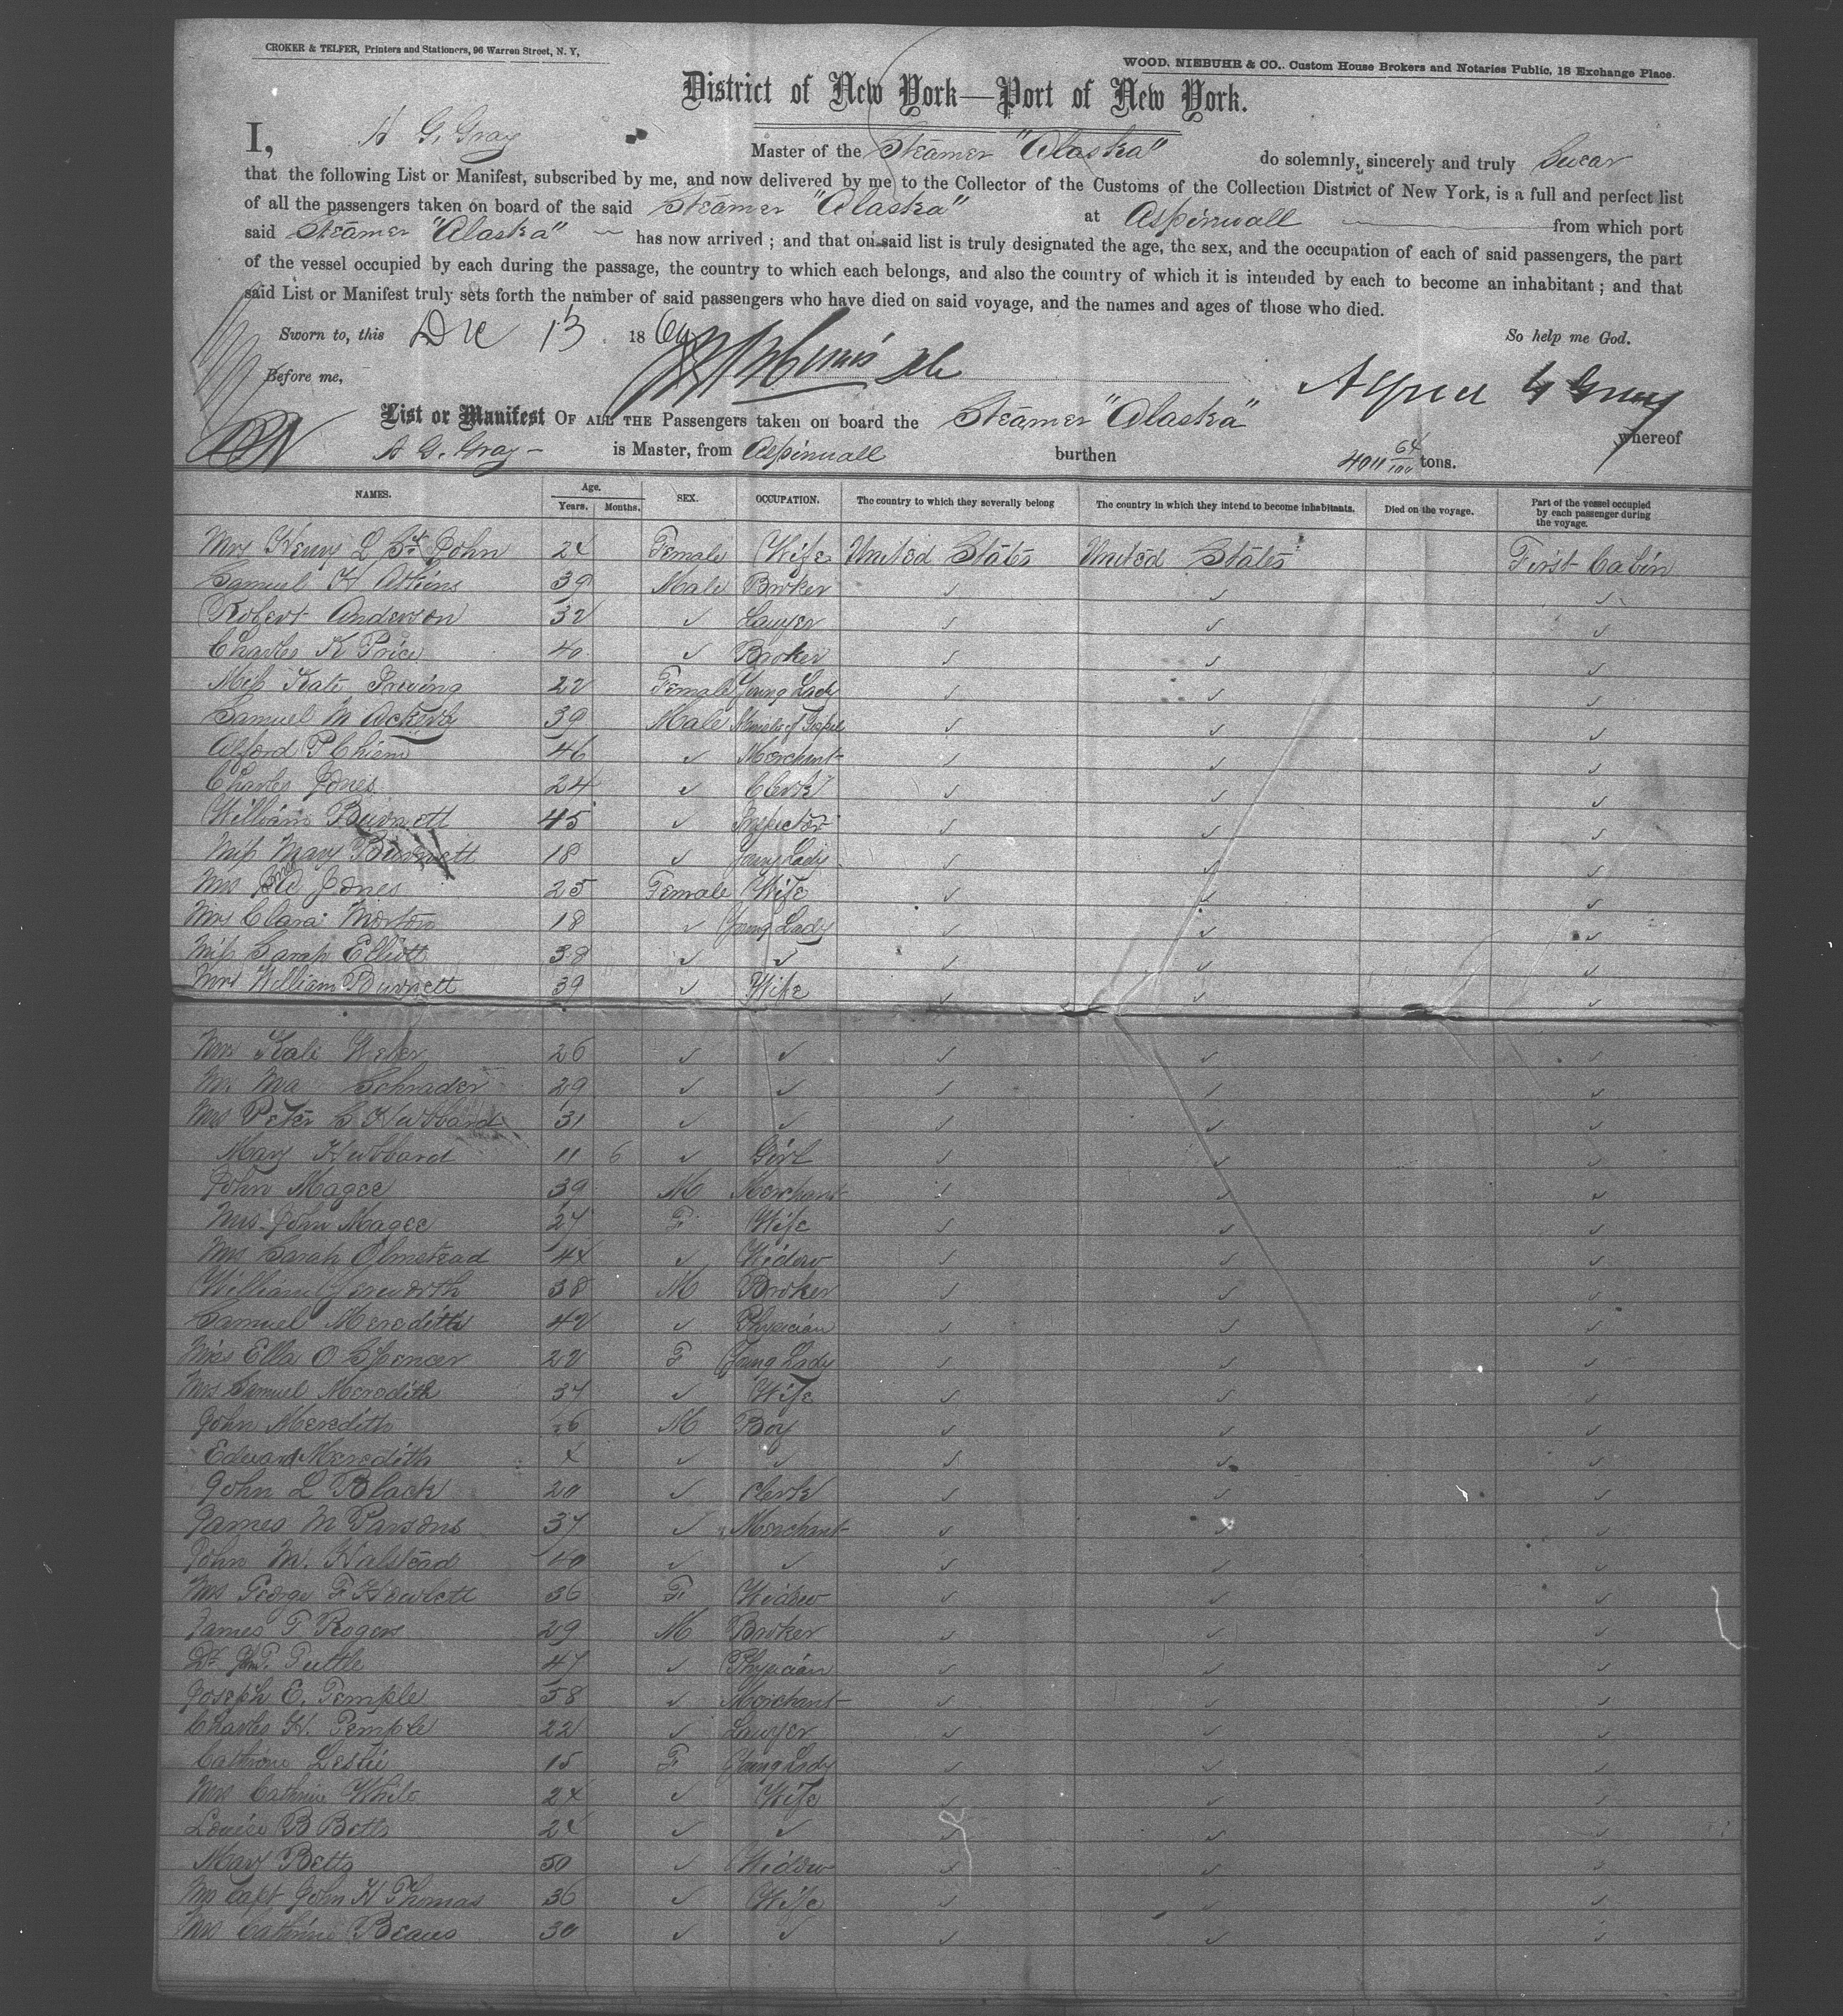 CROKER & TELFER, Printers and Stationers, 96 Warren Street, N. Y,
WOOD, NIEBUHR & CO., Custom House Brokers and Notaries Public, 18 Exchange Place.
District of New York—Port of New York.
I, A G. Gray Master of the Steamer "Alaska" do solemnly, sincerely and truly Swear
that the following List or Manifest, subscribed by me, and now delivered by me to the Collector of the Customs of the Collection District of New York, is a full and perfect list
of all the passengers taken on board of the said Steamer "Alaska" at Aspinwall from which port
said Steamer "Alaska" has now arrived ; and that on said list is truly designated the age, the sex, and the occupation of each of said passengers, the part
of the vessel occupied by each during the passage, the country to which each belongs, and also the country of which it is intended by each to become an inhabitant ; and that
said List or Manifest truly sets forth the number of said passengers who have died on said voyage, and the names and ages of those who died.
Sworn to, this Dec 13 186 So help me God.
Before me, Alfred G Gray
List or Manifest OF ALL THE Passengers taken on board the Steamer "Alaska" whereof
A G. Gray - is Master, from Aspinwall burthen 4011 64/100 tons.
NAMES. Age. Years. Months. SEX. OCCUPATION. The country to which they severally belong The country in which they intend to become inhabitants. Died on the voyage. Part of the vessel occupied by each passenger during the voyage.
Mrs Henry L St John 24 Female Wife United States United States First Cabin
Samuel H Atkins 39 Male Broker ✓ ✓ ✓
Robert Anderson 32 ✓ Lawyer ✓ ✓ ✓
Charles K Price 40 ✓ Broker ✓ ✓ ✓
Miss Kate 22 Female Young Lady ✓ ✓ ✓
Samuel M 39 Male Minister of Gospel ✓ ✓ ✓
Alford P 46 ✓ Merchant ✓ ✓ ✓
Charles Jones 24 ✓ Clerk ✓ ✓ ✓
William Burnett 45 ✓ Inspector ✓ ✓ ✓
Miss Mary Burnett 18 ✓ Young Lady ✓ ✓ ✓
Mrs Jones 25 Female Wife ✓ ✓ ✓
Clara Morton 18 ✓ Young Lady ✓ ✓ ✓
Miss Sarah Elliott 38 ✓ ✓ ✓ ✓ ✓
Mrs William Burnett 39 ✓ Wife ✓ ✓ ✓
Mrs Kate 26 ✓ ✓ ✓ ✓ ✓
Schrader 29 ✓ ✓ ✓ ✓ ✓
Mrs Peter C Hubbard 31 ✓ ✓ ✓ ✓ ✓
Mary Hubbard 11 6 ✓ Girl ✓ ✓ ✓
John Magee 39 M Merchant ✓ ✓ ✓
Mrs John Magee 27 F Wife ✓ ✓ ✓
Mrs Sarah Olmstead 44 ✓ Widow ✓ ✓ ✓
William 38 M Broker ✓ ✓ ✓
Samuel Meredith 42 ✓ Physician ✓ ✓ ✓
Miss Ella O Spencer 22 F Young Lady ✓ ✓ ✓
Mrs Samuel Meredith 37 ✓ Wife ✓ ✓ ✓
John Meredith 6 M Boy ✓ ✓ ✓
Edward Meredith 4 ✓ ✓ ✓ ✓ ✓
John L Black 20 ✓ Clerk ✓ ✓ ✓
James M Parsons 37 ✓ Merchant ✓ ✓ ✓
John M. Halstead 40 ✓ ✓ ✓ ✓ ✓
Mrs George F Howlett 36 F. Widow ✓ ✓ ✓
James T Rogers 29 M Broker ✓ ✓ ✓
Dr Tuttle 47 ✓ Physician ✓ ✓ ✓
Joseph E. Temple 58 ✓ Merchant ✓ ✓ ✓
Charles H. Temple 22 ✓ Lawyer ✓ ✓ ✓
Cathrine Leslie 15 F Young Lady ✓ ✓ ✓
Mrs Cathrine White 24 ✓ Wife ✓ ✓ ✓
Louise B Betts 24 ✓ ✓ ✓ ✓ ✓
Mary Betts 50 ✓ Widow ✓ ✓ ✓
Mrs Capt John H Thomas 36 ✓ Wife ✓ ✓ ✓
Mrs Cathrine 30 ✓ ✓ ✓ ✓ ✓